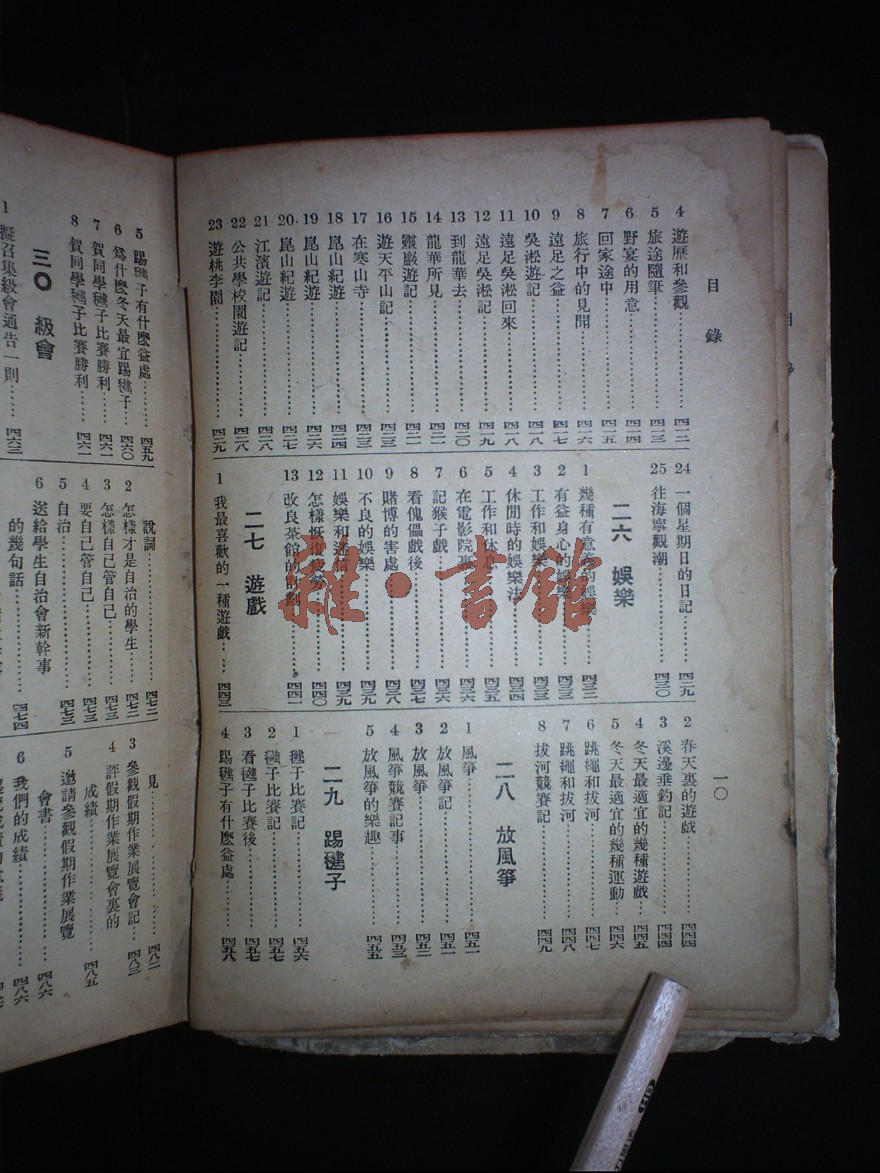 目錄
一〇
4 遊歷和參觀………四一二
5 旅途隨筆………四一三
6 野宴的用意………四一四
7 回家途中………四一五
8 旅行中的見聞………四一六
9 遠足之益………四一七
10 吳淞遊記………四一八
11 遠足吳淞回來………四一八
12 遠足吳淞記………四一九
13 到龍華去………四二〇
14 龍華所見………四二一
15 靈巖遊記………四二一
16 遊天平山記………四二三
17 在寒山寺………四二三
18 崑山紀遊………四二四
19 崑山紀遊………四二六
20 崑山紀遊………四二七
21 江濱遊記………四二八
22 公共學校園遊記………四二八
23 遊桃李園………四二九
24 一個星期日的日記………四二九
25 往海寧觀潮………四三〇
二六 娛樂
1 幾種有意的娛樂………四三二
2 有益身心的娛樂………四三三
3 工作和娛樂………四三三
4 休閒時的娛樂法………四三四
5 工作和休………四三五
6 在電影院裏………四三六
7 記猴子戲………四三六
8 看傀儡戲後………四三七
9 賭博的害處………四三八
10 不良的娛樂………四三九
11 娛樂和迷信………四三九
12 怎樣恢復疲勞………四四〇
13 改良茶館的計劃………四四一
二七 遊戲
1 我最喜歡的一種遊戲………四四三
2 春天裏的遊戲………四四四
3 溪邊垂釣記………四四四
4 冬天最適宜的幾種遊戲………四四五
5 冬天最適宜的幾種運動………四四六
6 跳繩和拔河………四四七
7 跳繩和拔河………四四八
8 拔河競賽記………四四九
二八 放風箏
1 風箏………四五一
2 放風箏記………四五一
3 放風箏………四五二
4 風箏競賽記事………四五三
5 放風箏的樂趣………四五五
二九 踢毽子
1 毽子比賽記………四五六
2 毽子比賽記………四五七
3 看毽子比賽後………四五七
4 踢毽子有什麽益處………四五八
5 踢毽子有什麽益處………四五九
6 爲什麽冬天最宜踢毽子………四六〇
7 賀同學毽子比賽勝利………四六一
8 賀同學毽子比賽勝利………四六一
三〇 級會
1 擬召集級會通告一則………四六三
說詞………四七二
2 怎樣才是自治的學生………四七二
3 怎樣自己管自己………四七三
4 要自己管自己………四七三
5 自治………四七三
6 送給學生自治會新幹事
的幾句話………四七四
見………四八二
3 參觀假期作業展覽會記………四八三
4 評假期作業展覽會裏的
成績………四八五
5 邀請參觀假期作業展覽
會書………四八六
6 我們的成績………四八六
雜·書館